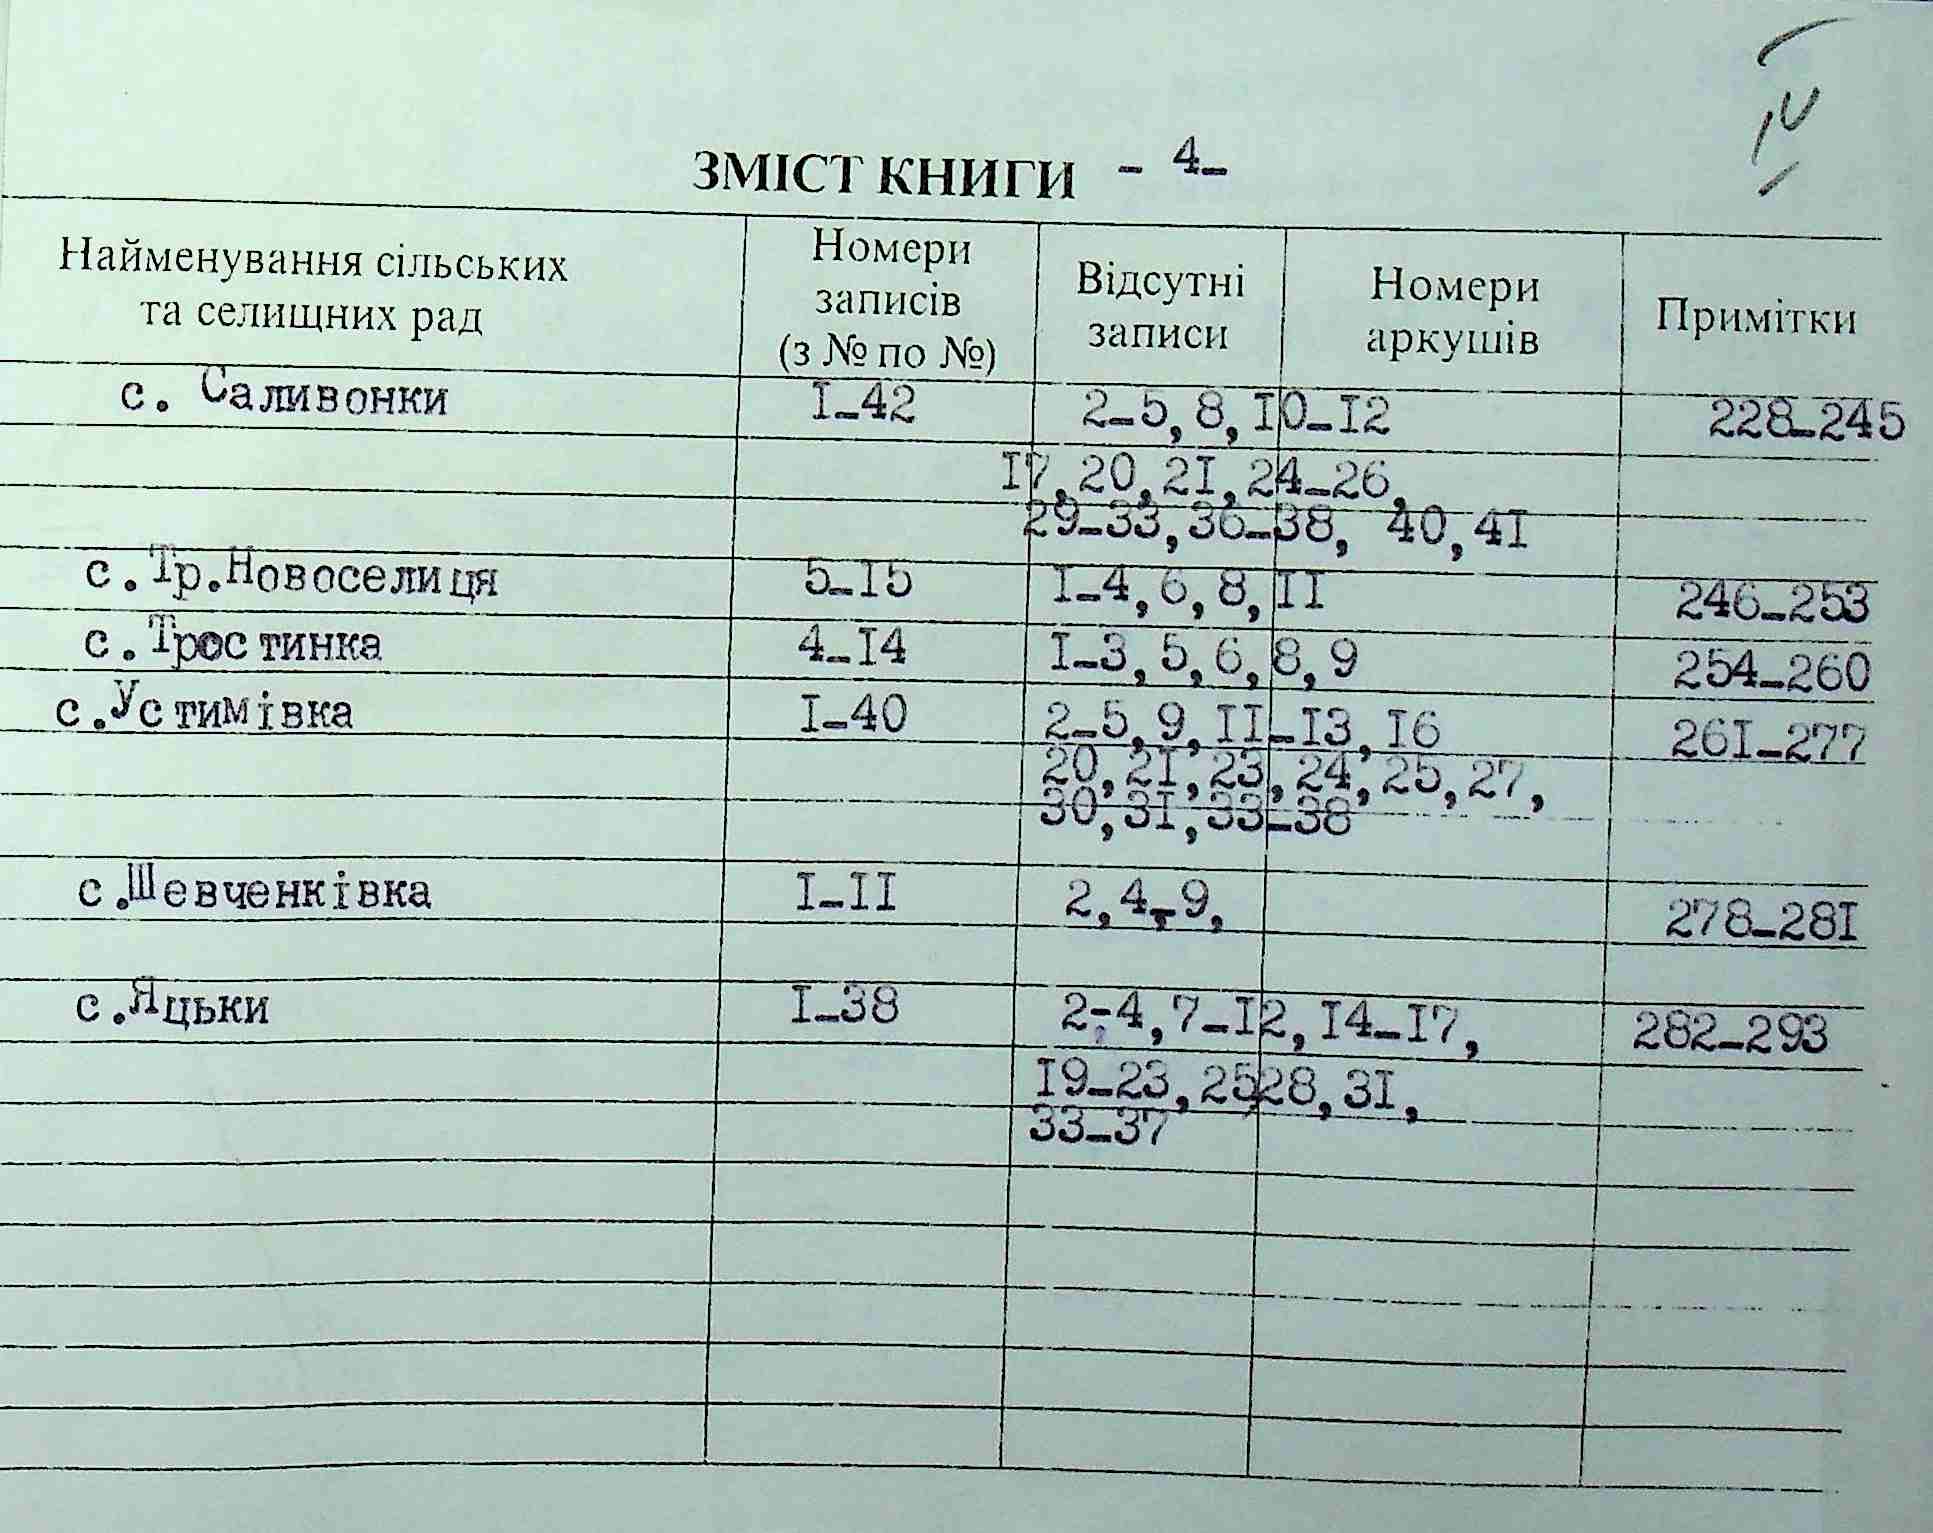 ЗМІСТ КНИГИ - 4-
Найменування сільських
та селищних рад
Номери
записів
(з № по №)
Відсутні
записи
Номери
аркушів
Примітки
с. Саливонки I-42 2-5,8,I0-I2 228-245
I7,20,2I,24-26,
29-33,36-38, 40,4I
с.Тр.Новоселиця 5-I5 I-4,6,8,II 246-253
с.Тростинка 4-I4 I-3,5,6,8,9 254-260
с.Устимівка I-40 2-5,9,II-I3,I6 26I-277
20,2I,23,24,25,27,
30,3I,33-38
с.Шевченківка I-II 2,4-9, 278-28I
с.Яцьки I-38 2-4,7-I2,I4-I7, 282-293
I9-23,25,28,3I,
33-37